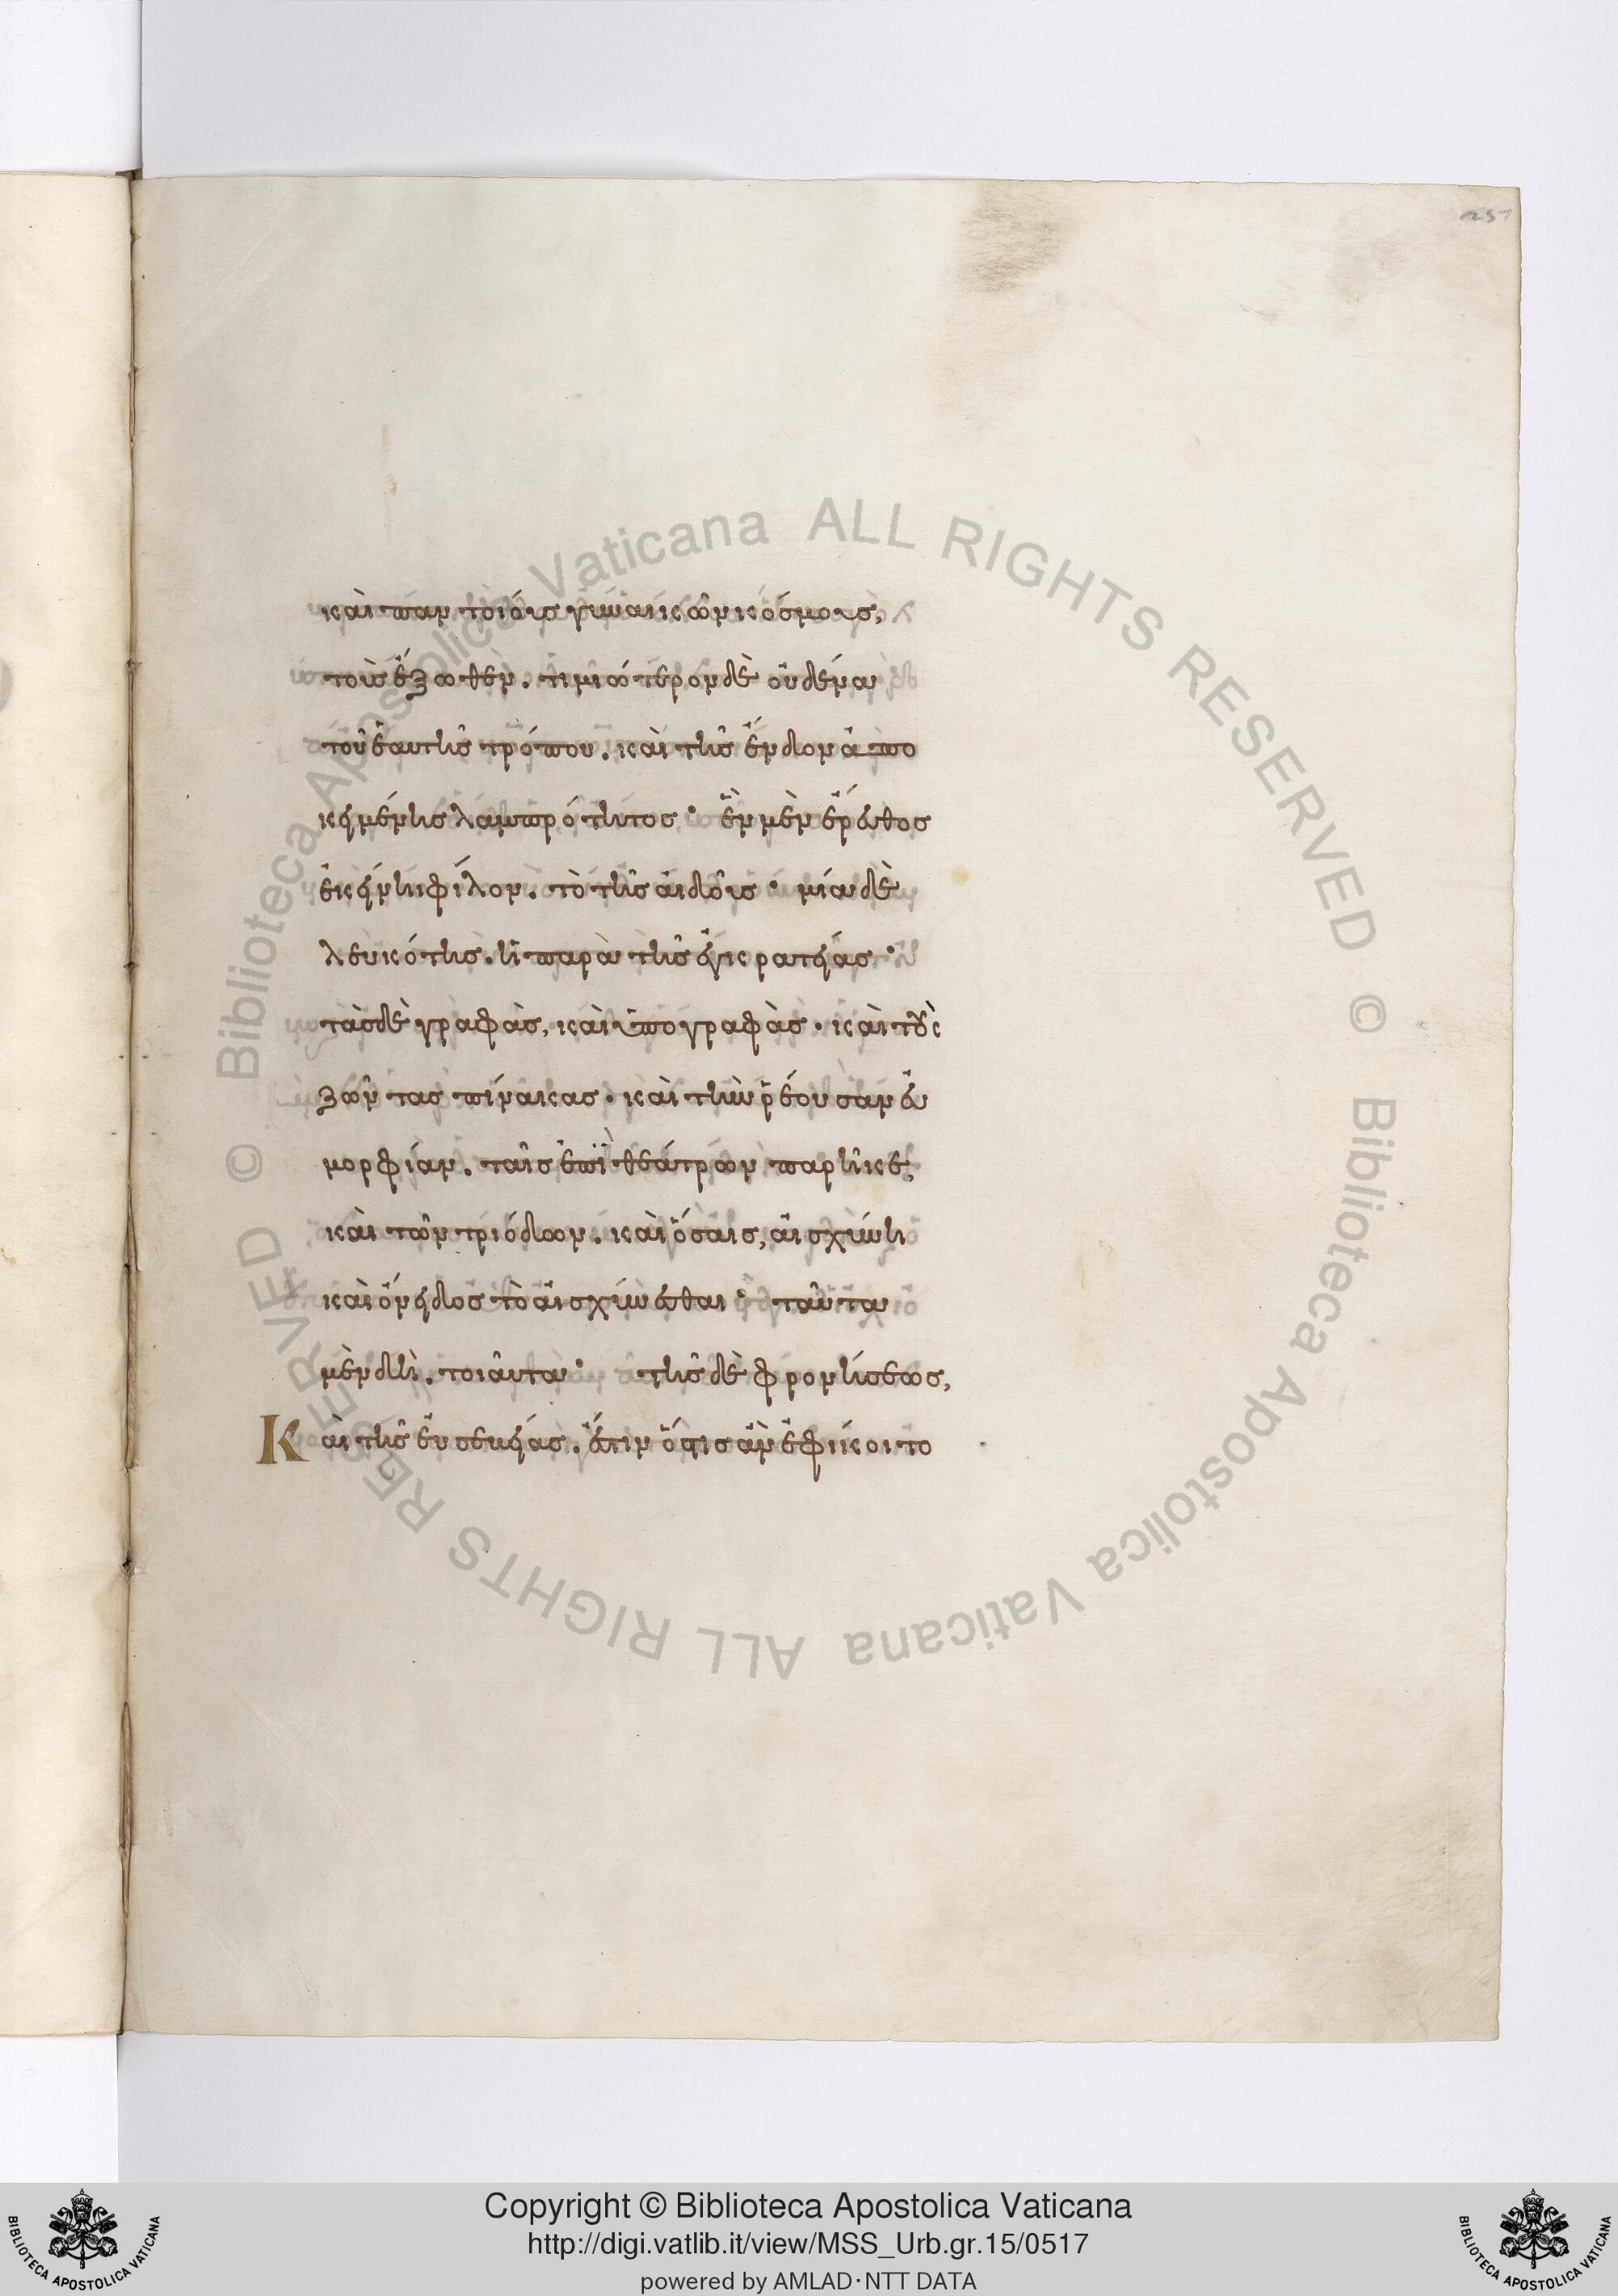 257
καὶ παντοίοις γυναικῶν κόσμοις,
τοῖς ἔξωθεν. τιμιώτερον δὲ οὐδένα
τοῦ ἑαυτῆς τρόπου. καὶ τῆς ἔνδον ἀπο
κειμένης λαμπρότητος· ἓν μὲν ἔρευθος
ἐκείνῃ φίλον. τὸ τῆς αἰδοῦς· μία δὲ
λευκότης. ἡ παρὰ τῆς ἐγκρατείας·
τὰς δὲ γραφὰς, καὶ ὑπογραφὰς· καὶ τοὺς
ζῶντας πίνακας· καὶ τὴν ῥέουσαν εὐ
μορφίαν. ταῖς ἐπὶ θεάτρων παρῆκε,
καὶ τῶν τριόδων. καὶ ὅσαις, αἰσχύνη
καὶ ὄνειδος τὸ αἰσχύνεσθαι· ταῦτα
μὲν δὴ. τοιαῦτα· τῆς δὲ φρονήσεως,
Καὶ τῆς εὐσεβείας. ἔστιν ὅστις ἂν ἐφίκοιτο
© Biblioteca Apostolica Vaticana ALL RIGHTS RESERVED © Biblioteca Apostolica Vaticana ALL RIGHTS RESERVED
Copyright © Biblioteca Apostolica Vaticana
http://digi.vatlib.it/view/MSS_Urb.gr.15/0517
powered by AMLAD·NTT DATA
BIBLIOTECA APOSTOLICA VATICANA
BIBLIOTECA APOSTOLICA VATICANA